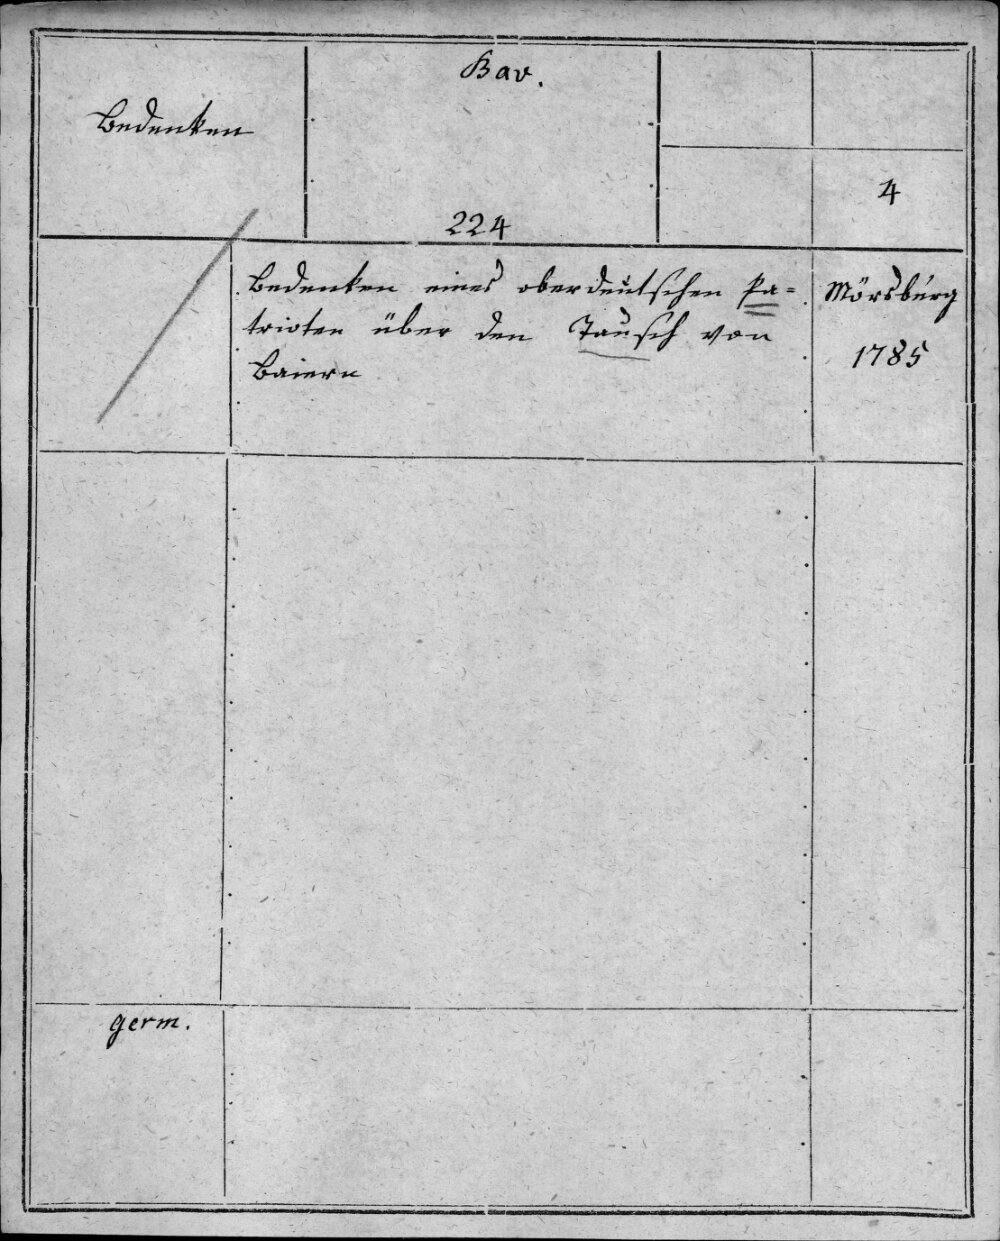 Bav.
Bedenken
4
224
Bedenken eines oberdeutschen Pa=
trioten über den Tausch von
Baiern
Mörsburg
1785
germ.